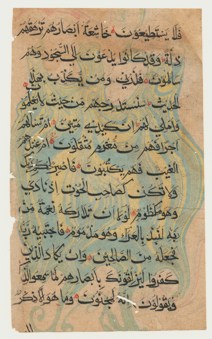 فلا يستطيعون خاشعة ابصارهم ترهقهم
ذلة وقد كانوا يدعون الى السجود وهم
سالمون فذرني ومن يكذب بهذا
الحديث سنستدرجهم من حيث لا يعلمون
واملي لهم ان كيدي متين ام تسئلهم
اجرا فهم من مغرم مثقلون ام عندهم
الغيب فهم يكتبون فاصبر لحكم ربك
ولا تكن كصاحب الحوت اذ نادى
وهو مكظوم لولا ان تداركه نعمة من
ربه لنبذ بالعراء وهو مذموم فاجتبيه ربه
فجعله من الصالحين وان يكاد الذين
كفروا ليزلقونك بابصارهم لما سمعوا الذكر
ويقولون انه لمجنون وما هو الا ذكر